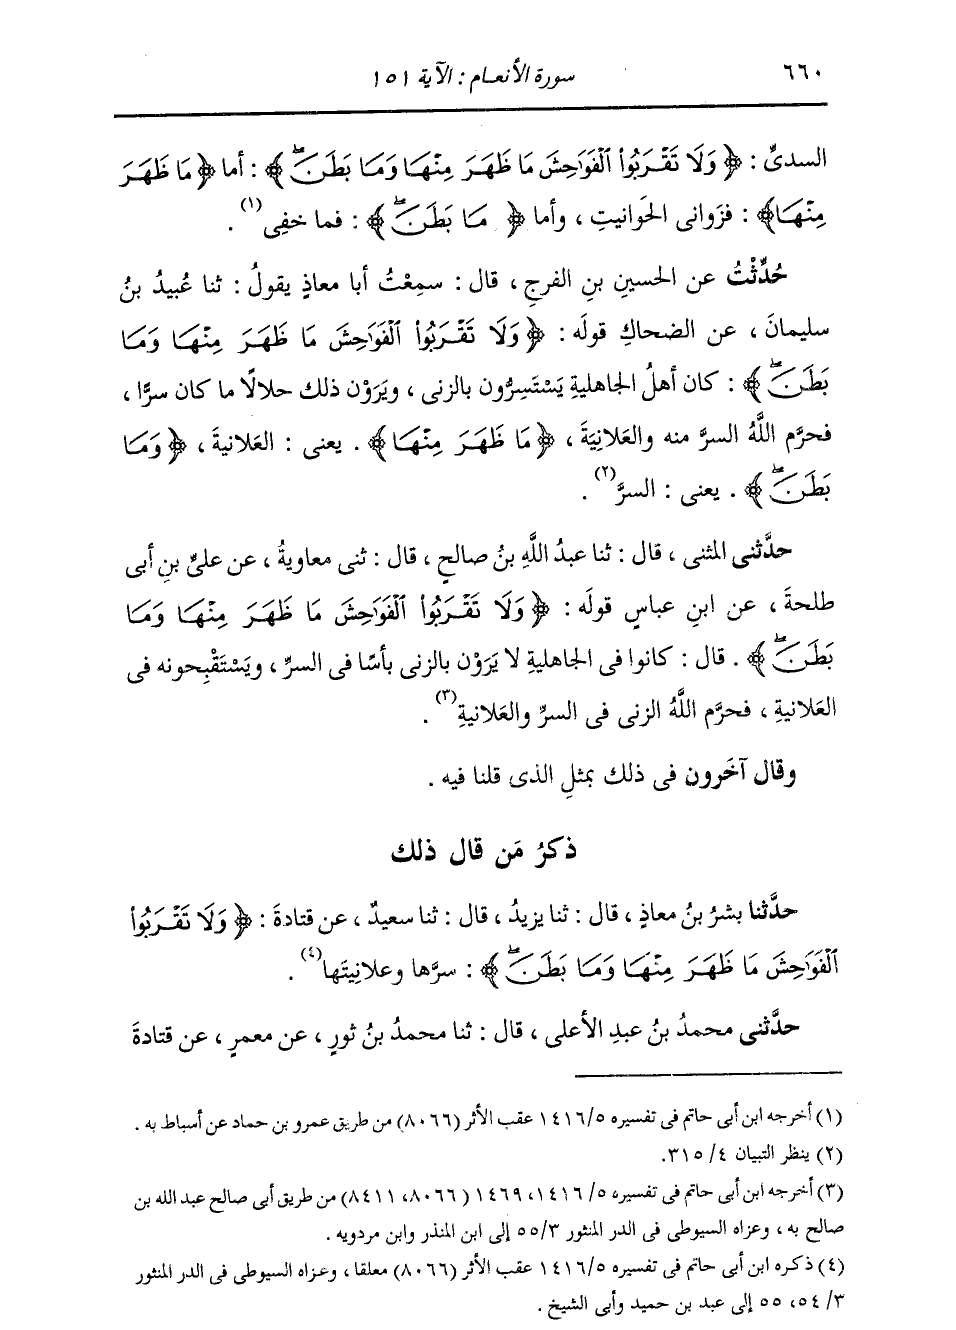 ٦٦٠ سورة الأنعام : الآية ١٥١
السدىِّ : ﴿ وَلَا تَقْرَبُوا۟ ٱلْفَوَٰحِشَ مَا ظَهَرَ مِنْهَا وَمَا بَطَنَۖ ﴾ : أما ﴿ مَا ظَهَرَ
مِنْهَا ﴾ : فزَوانى الحَوانيتِ ، وأما ﴿ مَا بَطَنَۖ ﴾ : فما خفِى(١) .
حُدِّثْتُ عن الحسينِ بنِ الفرجِ ، قال : سمِعْتُ أبا معاذٍ يقولُ : ثنا عُبيدُ بنُ
سليمانَ ، عن الضحاكِ قولَه : ﴿ وَلَا تَقْرَبُوا۟ ٱلْفَوَٰحِشَ مَا ظَهَرَ مِنْهَا وَمَا
بَطَنَۖ ﴾ : كان أهلُ الجاهليةِ يَسْتَسِرُّون بالزنى ، ويَرَوْن ذلك حلالًا ما كان سرًّا ،
فحرَّم اللَّهُ السرَّ منه والعَلانِيَةَ ، ﴿ مَا ظَهَرَ مِنْهَا ﴾ . يعنى : العَلانيةَ ، ﴿ وَمَا
بَطَنَۖ ﴾ . يعنى : السرَّ(٢) .
حدَّثنى المثنى ، قال : ثنا عبدُ اللَّهِ بنُ صالحٍ ، قال : ثنى معاويةُ ، عن علىِّ بنِ أبى
طلحةَ ، عن ابنِ عباسٍ قولَه : ﴿ وَلَا تَقْرَبُوا۟ ٱلْفَوَٰحِشَ مَا ظَهَرَ مِنْهَا وَمَا
بَطَنَۖ ﴾ . قال : كانوا فى الجاهليةِ لا يَرَوْن بالزنى بأسًا فى السرِّ ، ويَسْتَقْبِحونه فى
العَلانيةِ ، فحرَّم اللَّهُ الزنى فى السرِّ والعَلانيةِ(٣) .
وقال آخَرون فى ذلك بمثلِ الذى قلنا فيه .
ذكرُ مَن قال ذلك
حدَّثنا بشرُ بنُ معاذٍ ، قال : ثنا يزيدُ ، قال : ثنا سعيدٌ ، عن قتادةَ : ﴿ وَلَا تَقْرَبُوا۟
ٱلْفَوَٰحِشَ مَا ظَهَرَ مِنْهَا وَمَا بَطَنَۖ ﴾ : سرَّها وعلانيتَها(٤) .
حدَّثنى محمدُ بنُ عبدِ الأعلى ، قال : ثنا محمدُ بنُ ثورٍ ، عن معمرٍ ، عن قتادةَ
(١) أخرجه ابن أبى حاتم فى تفسيره ١٤١٦/٥ عقب الأثر (٨٠٦٦) من طريق عمرو بن حماد عن أسباط به .
(٢) ينظر التبيان ٤/ ٣١٥.
(٣) أخرجه ابن أبى حاتم فى تفسيره ٥/ ١٤١٦، ١٤٦٩ ( ٨٠٦٦، ٨٤١١) من طريق أبى صالح عبد الله بن
صالح به ، وعزاه السيوطى فى الدر المنثور ٥٥/٣ إلى ابن المنذر وابن مردويه .
(٤) ذكره ابن أبى حاتم فى تفسيره ١٤١٦/٥ عقب الأثر (٨٠٦٦) معلقا ، وعزاه السيوطى فى الدر المنثور
٣/ ٥٤، ٥٥ إلى عبد بن حميد وأبى الشيخ .